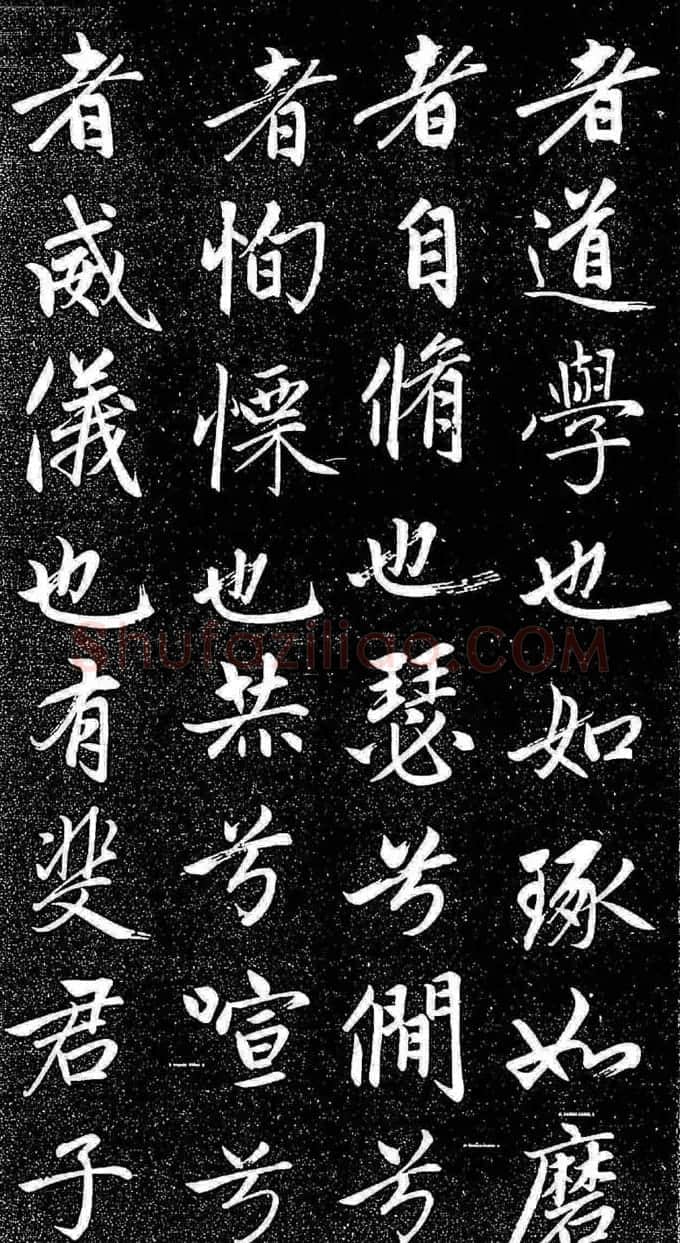 者道學也如琢如磨
者自脩也瑟兮僩兮
者恂慄也赫兮喧兮
者威儀也有斐君子
Shufaziliao.COM